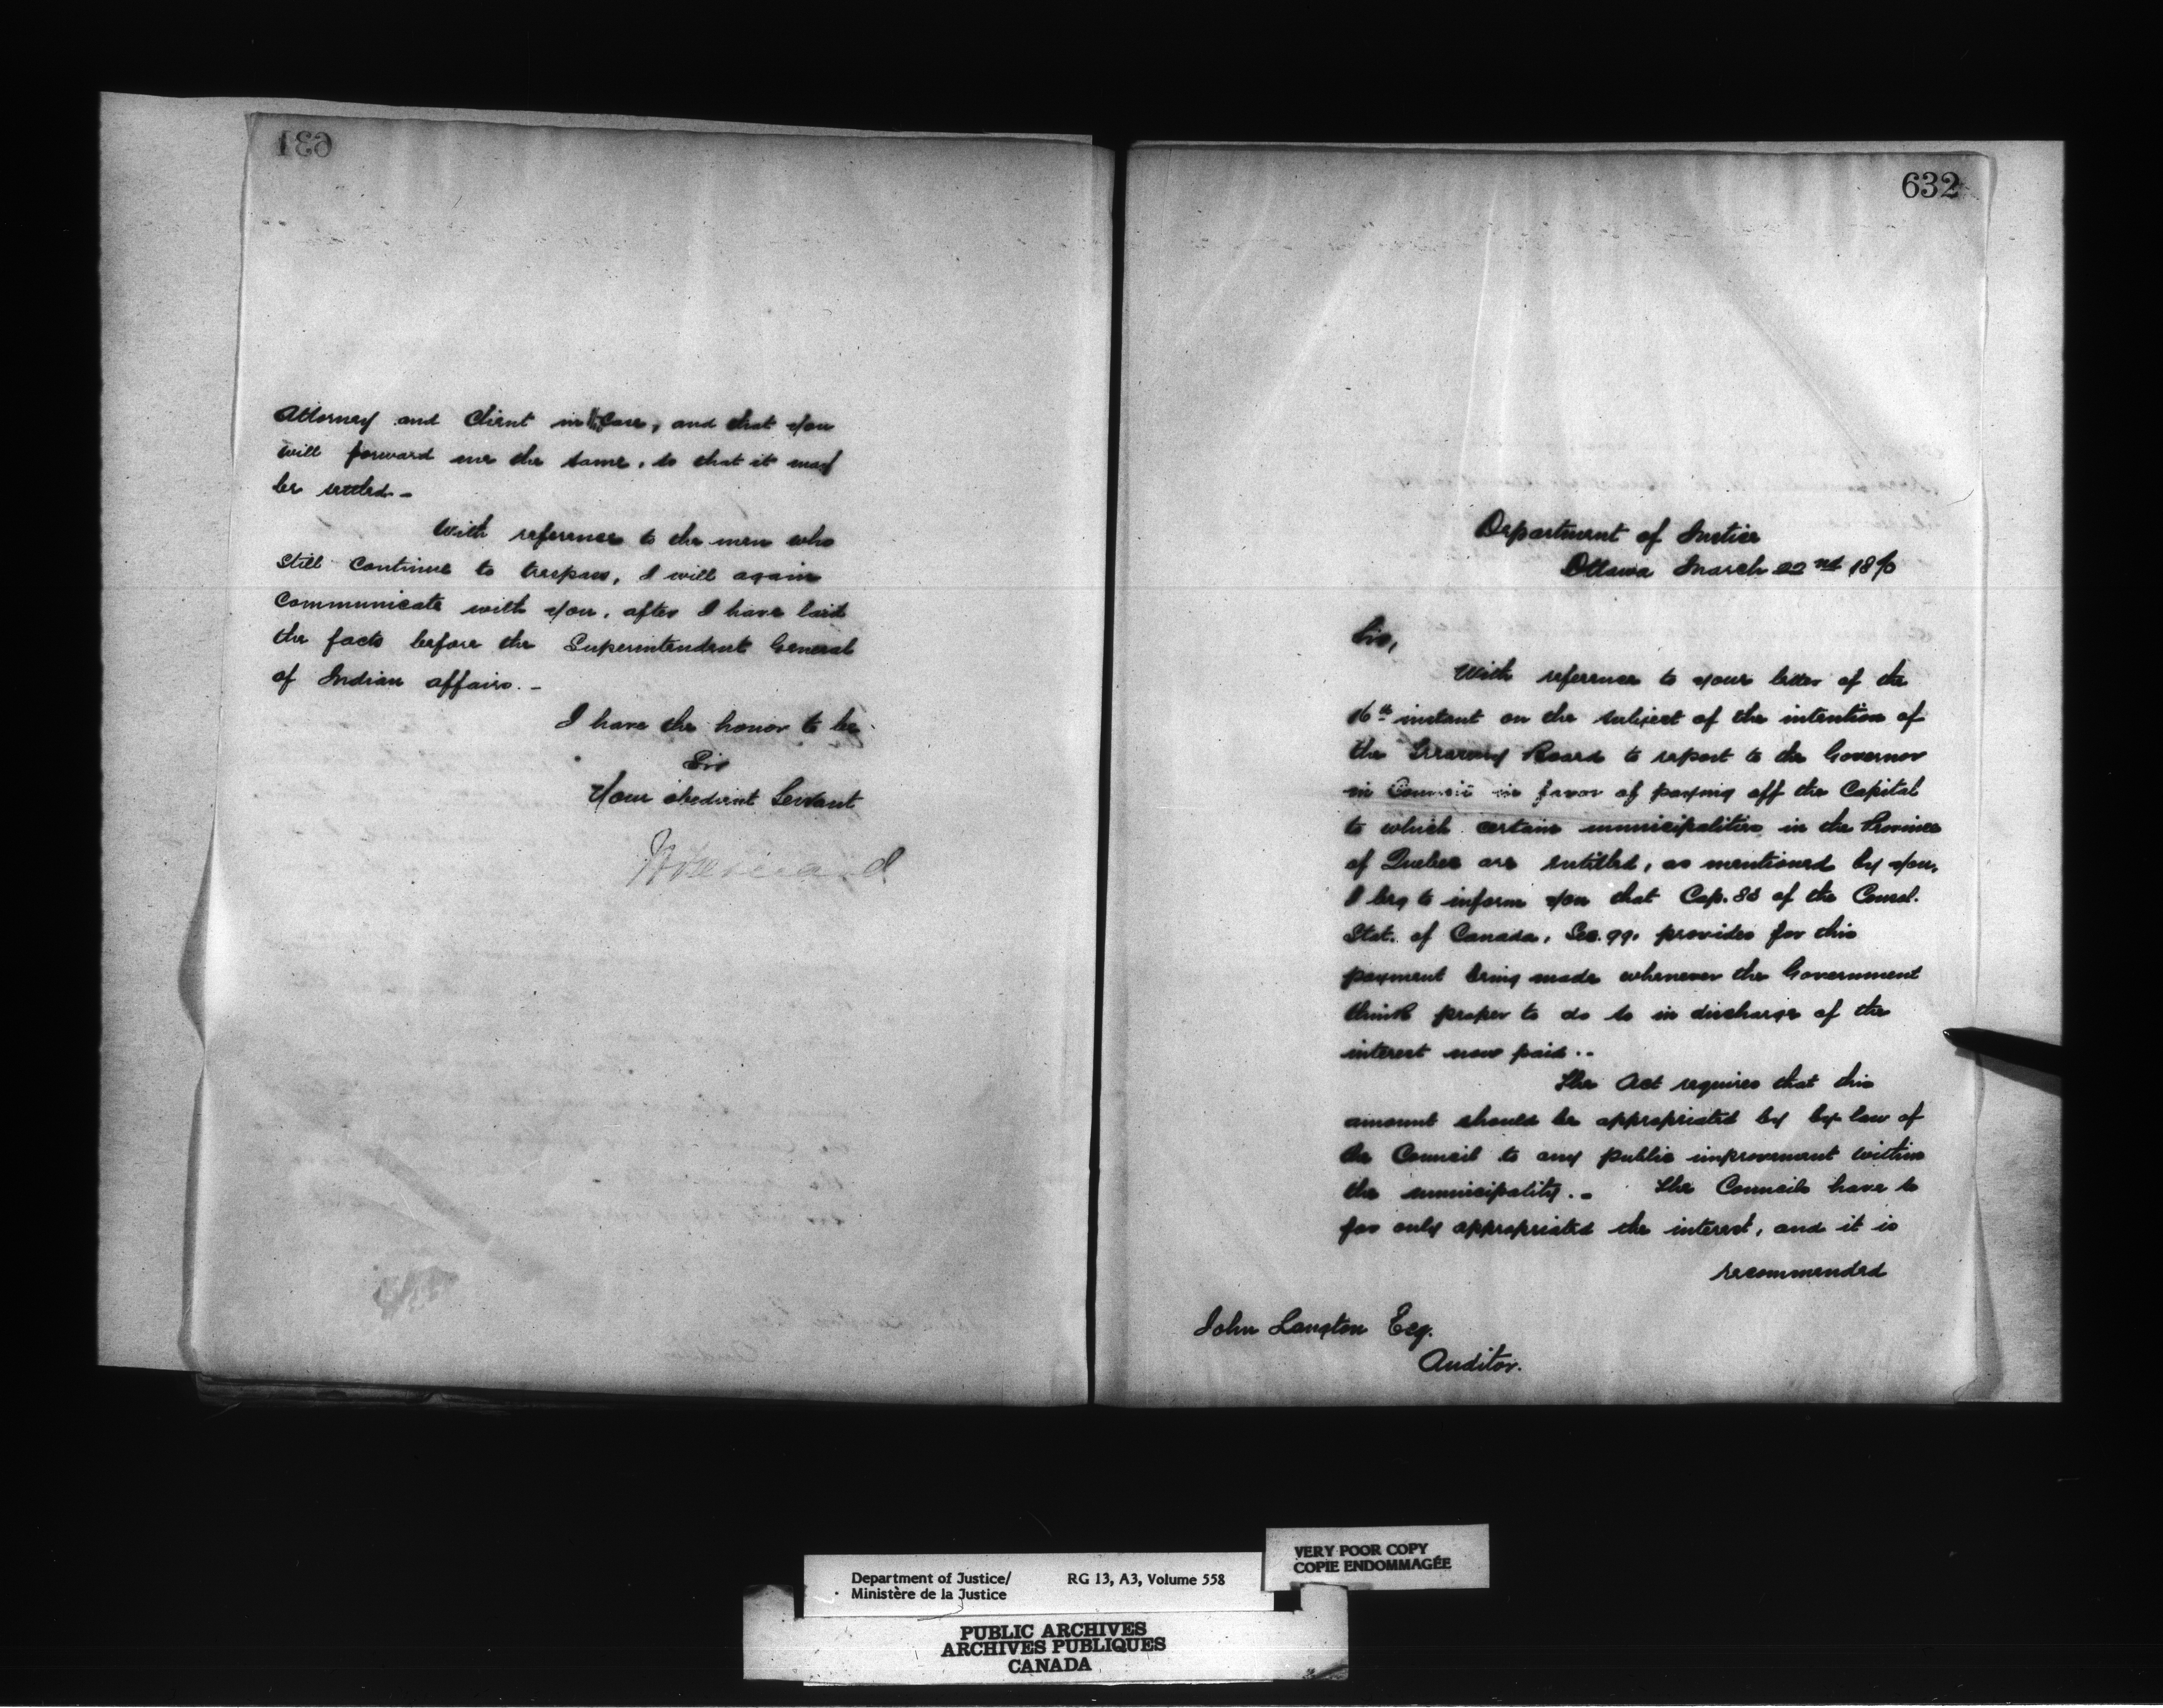 631
Attorney and Client in the Case, and that you
will forward me the same, so that it may
be settled -
With reference to the men who
still continue to trespass, I will again
communicate with you, after I have laid
the facts before the Superintendent General
of Indian affairs. -
I have the honor to be
Sir
Your obedient Servant
632
Department of Justice
Ottawa March 22nd 1870
Sir,
With reference to your letter of the
16th instant on the subject of the intention of
the Treasury Board to report to the Governor
in Council in favor of paying off the Capital
to which certain municipalities in the Province
of Quebec are entitled, as mentioned by you,
I beg to inform you that Cap. of the Consol.
Stat. of Canada, Sec. 99, provides for this
payment being made whenever the Government
think proper to do so in discharge of the
interest now paid. -
The Act requires that this
amount should be appropriated by by-law of
the Council to any public improvement within
the municipality. - The Councils have so
far only appropriated the interest, and it is
recommended
John Langton Esq.
Auditor.
VERY POOR COPY
COPIE ENDOMMAGÉE
Department of Justice/ RG 13, A3, Volume 558
Ministère de la Justice
PUBLIC ARCHIVES
ARCHIVES PUBLIQUES
CANADA